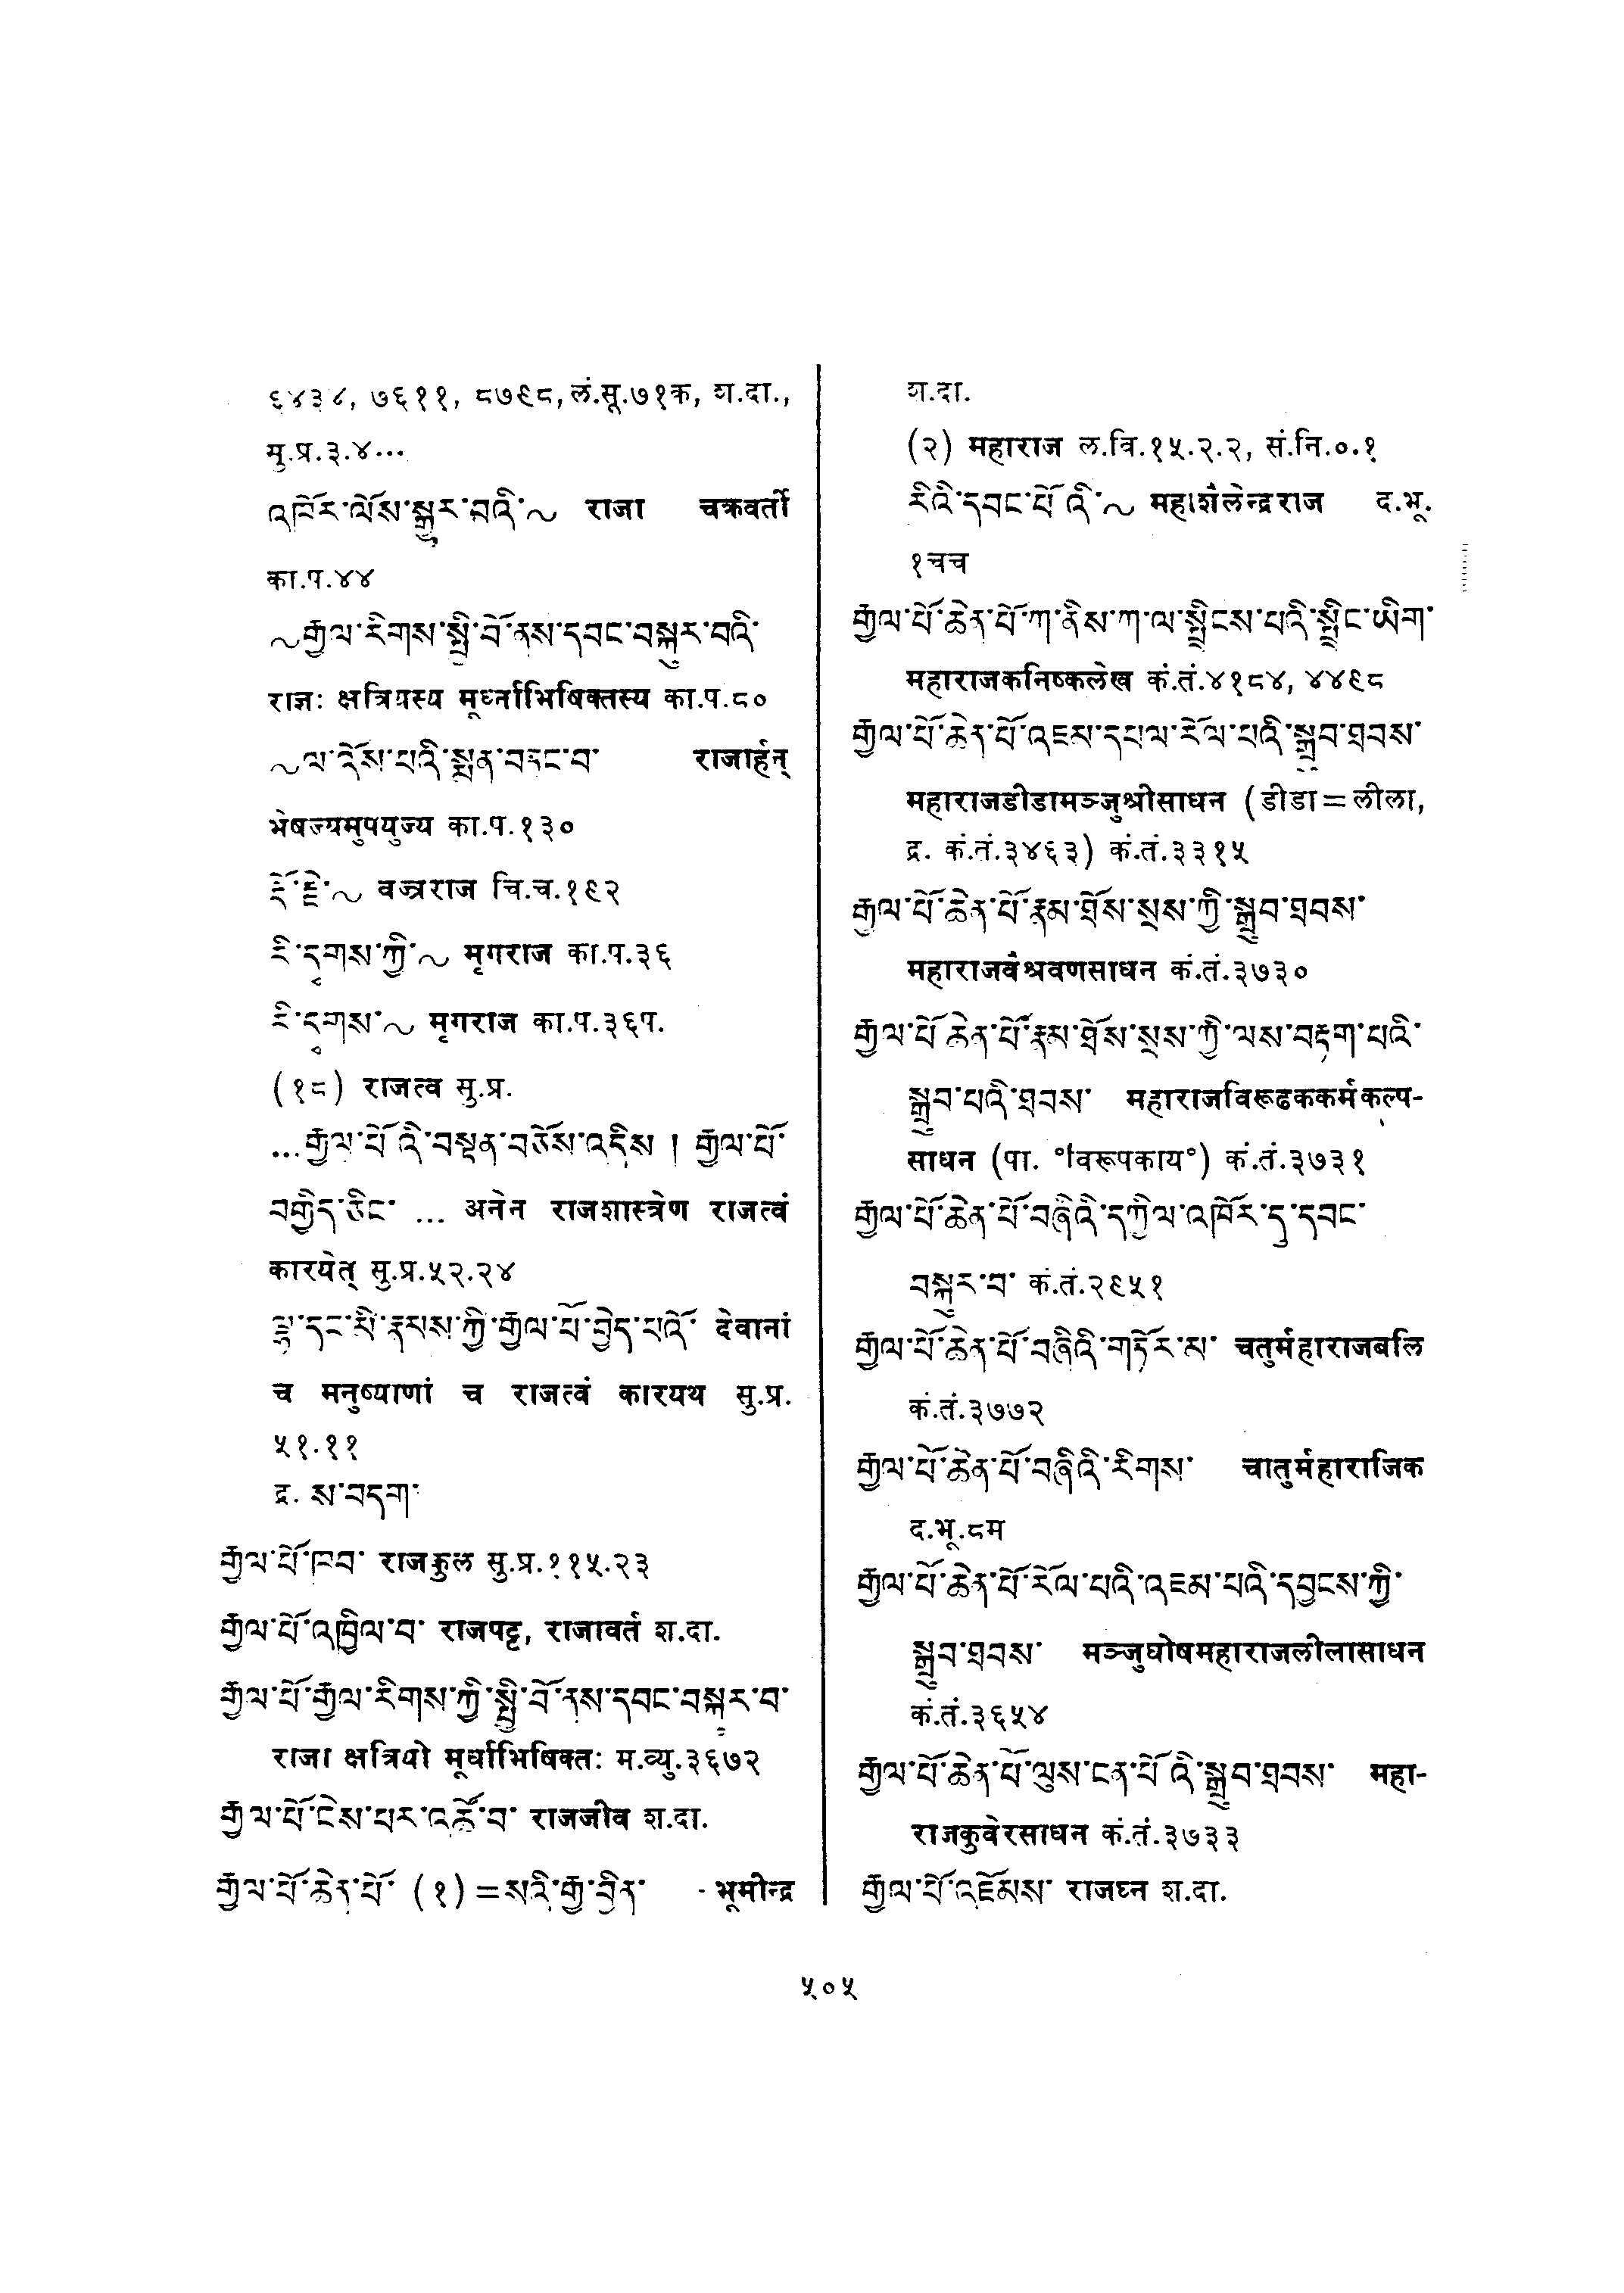 ६४३८, ७६११, ८७९८, लं.सू.७१क, श.दा.,
सु.प्र.३.४···
འཁོར་ལོས་སྒྱུར་བའི་~ राजा चक्रवर्ती
का.प.४४
~རྒྱལ་རིགས་སྤྱི་བོ་ནས་དབང་བསྐུར་བའི་
राज्ञः क्षत्रियस्य मूर्ध्नाभिषिक्तस्य का.प.८०
~ལ་འོས་པའི་སྨན་བཏང་བ་ राजार्हन्
भेषज्यमुपयुज्य का.प.१३०
རྡོ་རྗེ་~ वज्रराज चि.च.१९२
རི་དྭགས་ཀྱི་~ मृगराज का.प.३६
རི་དྭགས་~ मृगराज का.प.३६प.
(१८) राजत्व सु.प्र.
...རྒྱལ་པོ འི་བསྟན་བཅོས་འདིས། རྒྱལ་པོ་
བགྱིད་ཅིང་ ... अनेन राजशास्त्रेण राजत्वं
कारयेत् सु.प्र.५२.२४
ལྷ་དང་མི་རྣམས་ཀྱི་རྒྱལ་པོ་བྱེད་པའོ་ देवानां
च मनुष्याणां च राजत्वं कारयथ सु.प्र.
५१.११
द्र. ས་བདག་
རྒྱལ་པོ་ཁབ་ राजकुल सु.प्र.११५.२३
རྒྱལ་པོ་འཁྱིལ་བ་ राजपट्ट, राजावर्त श.दा.
རྒྱལ་པོ་རྒྱལ་རིགས་ཀྱི་སྤྱི་བོ་ནས་དབང་བསྐུར་བ་
राजा क्षत्रियो मूर्धाभिषिक्तः म.व्यु.३६७२
རྒྱལ་པོ་ངེས་པར་འཚོ་བ་ राजजीव श.दा.
རྒྱལ་པོ་ཆེན་པོ་ (१)=སའི་རྒྱ་བྱིན་ - भूमीन्द्र
श.दा.
(२) महाराज ल.वि.१५.२.२, सं.नि.०.१
རིའི་དབང་པོ འི་~ महाशैलेन्द्रराज द.भू.
१चच
རྒྱལ་པོ་ཆེན་པོ་ཀ་ནིས་ཀ་ལ་སྤྲིངས་པའི་སྤྲིང་ཡིག་
महाराजकनिष्कलेख कं.तं.४१८४, ४४९८
རྒྱལ་པོ་ཆེན་པོ་འཇམ་དཔལ་རོལ་པའི་སྒྲུབ་ཐབས་
महाराजडीडामञ्जुश्रीसाधन (डीडा=लीला,
द्र. कं.तं.३४६३) कं.तं.३३१५
རྒྱལ་པོ་ཆེན་པོ་རྣམ་ཐོས་སྲས་ཀྱི་སྒྲུབ་ཐབས་
महाराजवैश्रवणसाधन कं.तं.३७३०
རྒྱལ་པོ་ཆེན་པོ་རྣམ་ཐོས་སྲས་ཀྱི་ལས་བརྟག་པའི་
སྒྲུབ་པའི་ཐབས་ महाराजविरूढककर्मकल्प-
साधन (पा. °विरूपकाय°) कं.तं.३७३१
རྒྱལ་པོ་ཆེན་པོ་བཞིའི་དཀྱིལ་འཁོར་དུ་དབང་
བསྐུར་བ་ कं.तं.२९५१
རྒྱལ་པོ་ཆེན་པོ་བཞིའི་གཏོར་མ་ चतुर्महाराजबलि
कं.तं.३७७२
རྒྱལ་པོ་ཆེན་པོ་བཞིའི་རིགས་ चातुर्महाराजिक
द.भू.८म
རྒྱལ་པོ་ཆེན་པོ་རོལ་པའི་འཇམ་པའི་དབྱངས་ཀྱི་
སྒྲུབ་ཐབས་ मञ्जुघोषमहाराजलीलासाधन
कं.तं.३६५४
རྒྱལ་པོ་ཆེན་པོ་ལུས་ངན་པོ འི་སྒྲུབ་ཐབས་ महा-
राजकुवेरसाधन कं.तं.३७३३
རྒྱལ་པོ་འཇོམས་ राजघ्न श.दा.
५०५